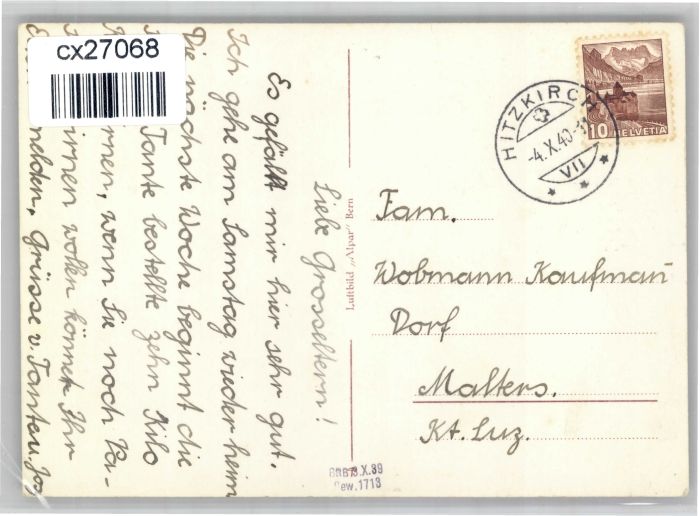 cx27068
Liebe Grosseltern!
Es gefällt mir hier sehr gut.
Ich gehe am Samstag wieder heim
Die nächste Woche beginnt die
Tante bestellte zehn Kilo
wenn Sie noch Va-
wollen können Ihr
melden, Grüsse v. Tante u. Jos
Luftbild „Alpar" Bern
BRB 3.X.39
ew. 1713
HITZKIRCH
-4.X.40-
VII
10 HELVETIA
Fam.
Wobmann Kaufman̄
Dorf
Malters.
Kt. Luz.